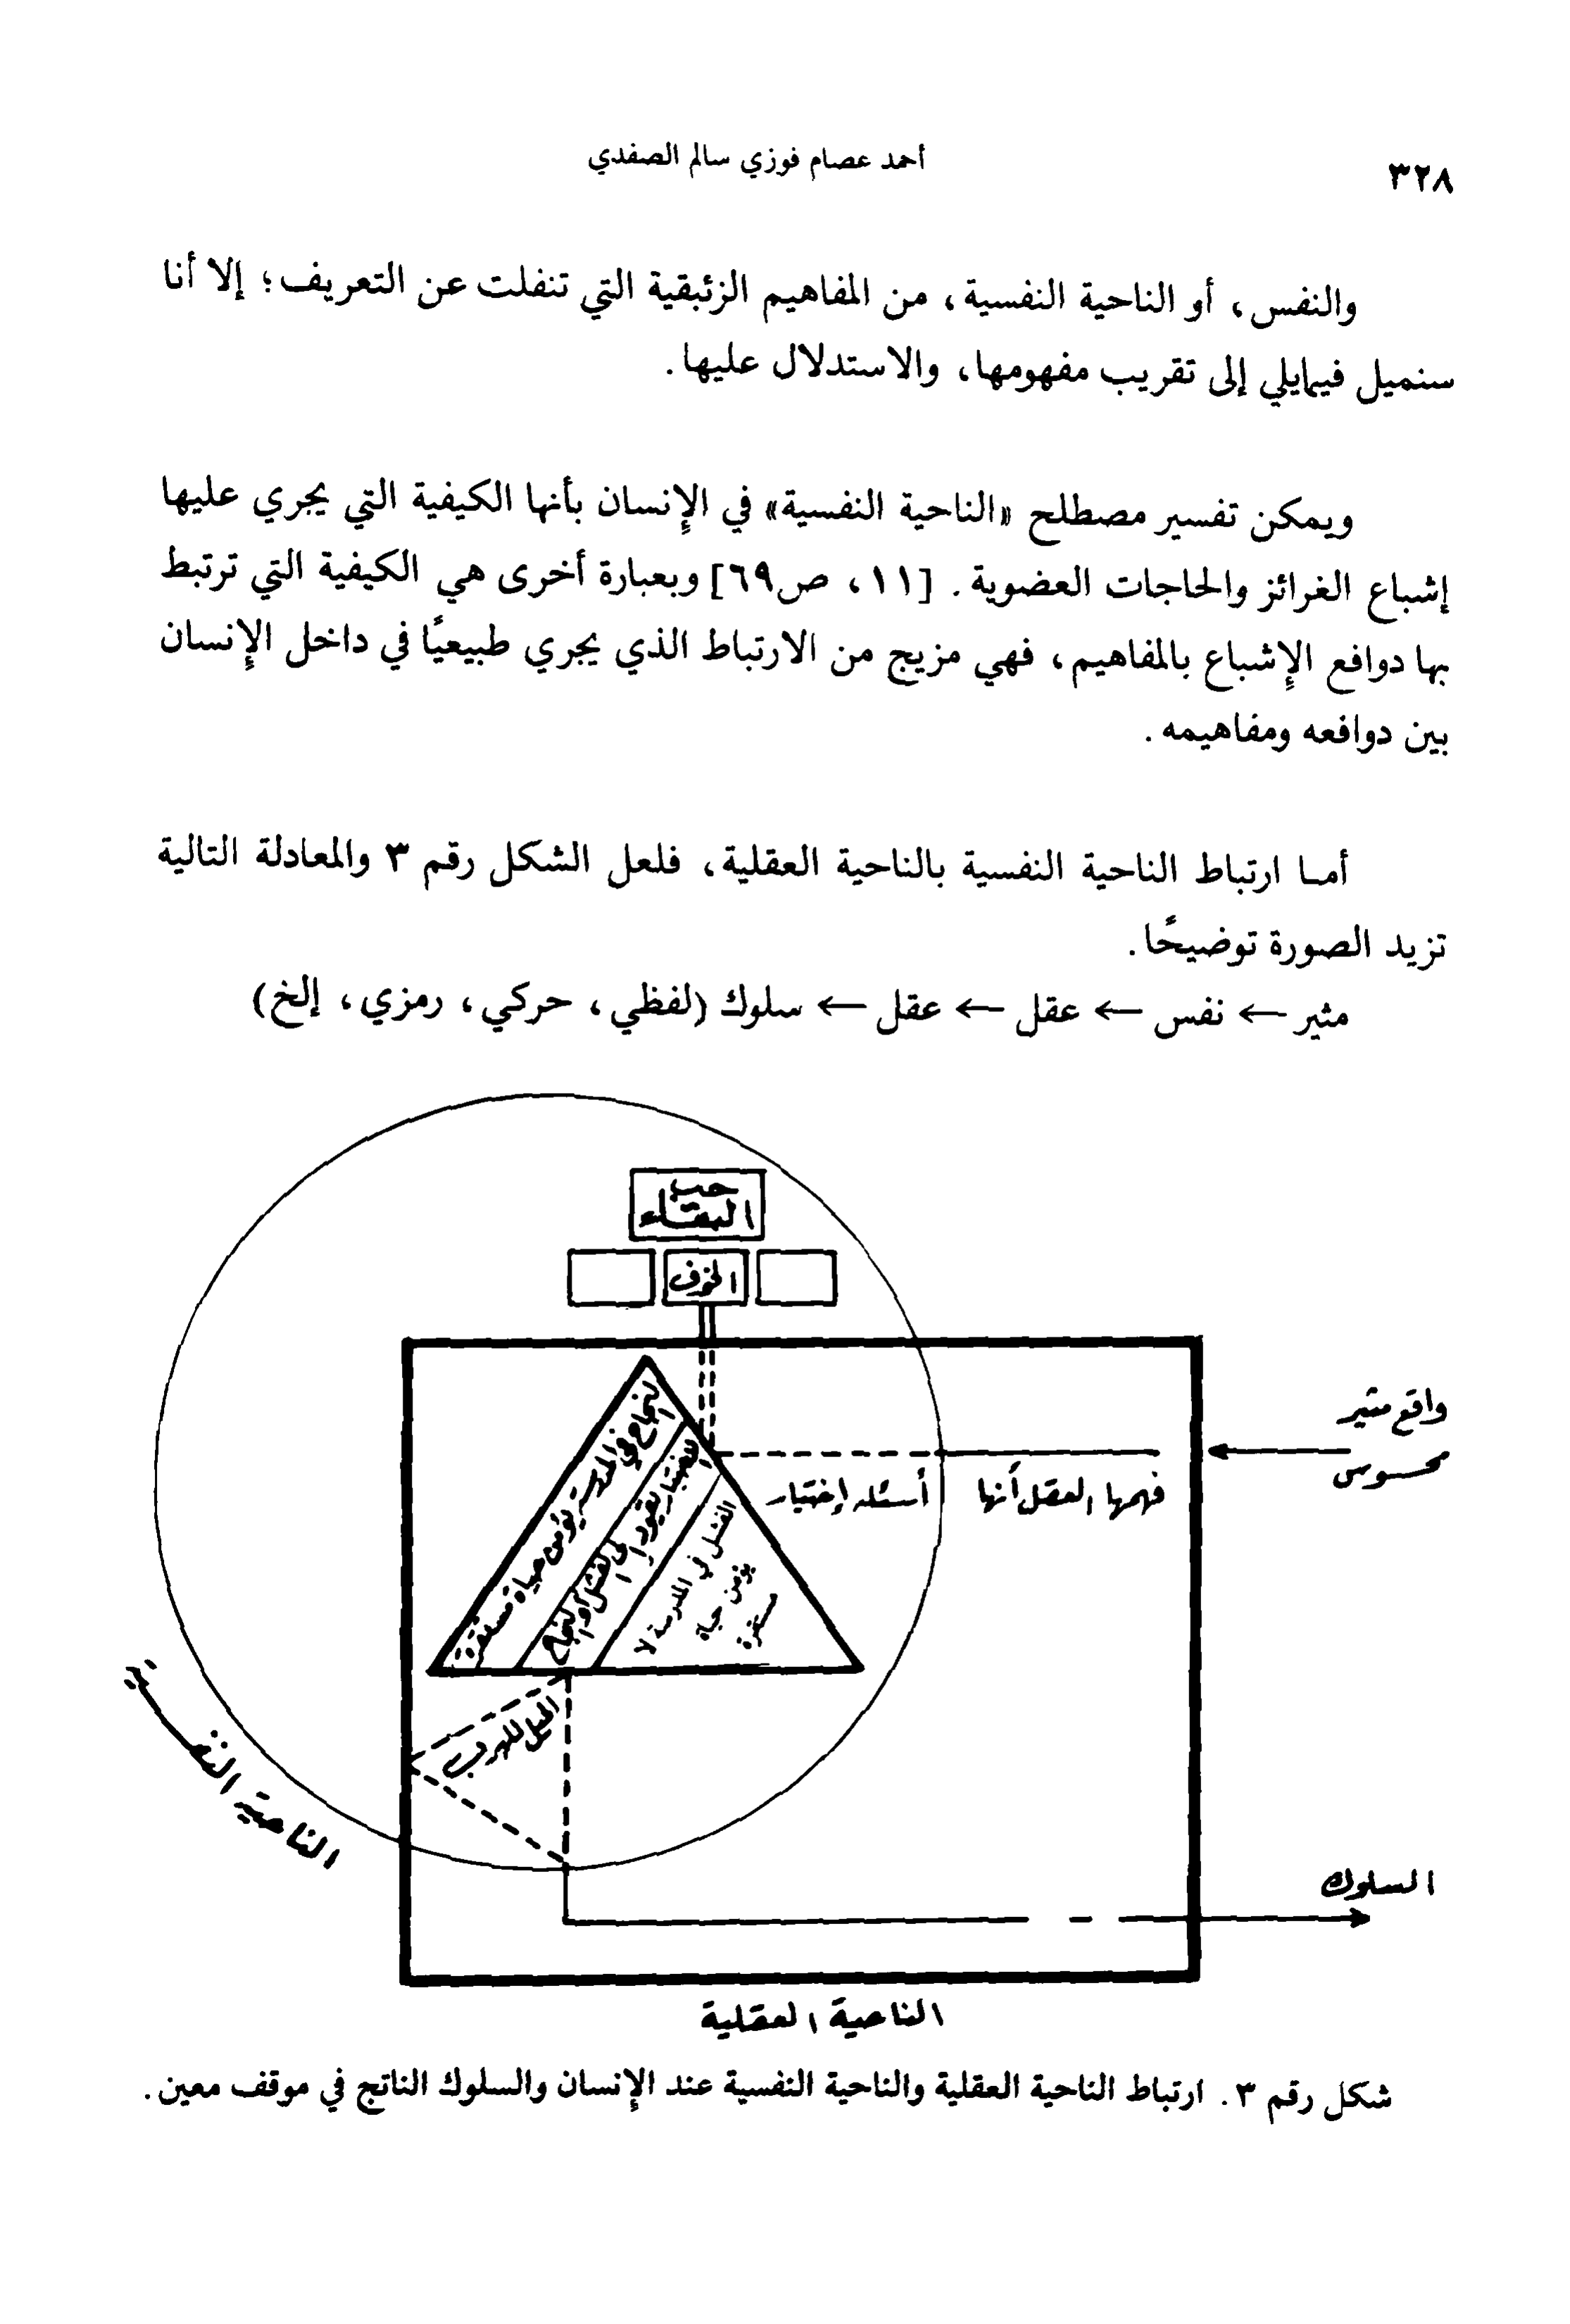 ٣٢٨
أحمد عصام فوزي سالم الصفدي
والنفس، أو الناحية النفسية، من المفاهيم الزئبقية التي تنفلت عن التعريف؛ إلا أنا
سنميل فيمايلي إلى تقريب مفهومها، والاستدلال عليها.
ويمكن تفسير مصطلح «الناحية النفسية» في الإنسان بأنها الكيفية التي يجري عليها
إشباع الغرائز والحاجات العضوية. [١١، ص٦٩] وبعبارة أخرى هي الكيفية التي ترتبط
بها دوافع الإشباع بالمفاهيم، فهي مزيج من الارتباط الذي يجري طبيعيًا في داخل الإنسان
بين دوافعه ومفاهيمه.
أما ارتباط الناحية النفسية بالناحية العقلية، فلعل الشكل رقم ٣ والمعادلة التالية
تزيد الصورة توضيحًا.
مثير ← نفس ← عقل ← عقل ← سلوك (لفظي، حركي، رمزي، إلخ)
حب
البقاء
الخوف
واقع مثير
محسوس
فهمها العقل أنها
أسئله إختبار
النجاح في المدرسة يؤمن حياة مستقرة
الإختبار يقود إلى الفشل أو النجاح
الفشل في المدرسة لا
يؤمن حياة
مستقرة
الميل للهرب
الناحية النفسية
السلوك
الناحية العقلية
شكل رقم ٣. ارتباط الناحية العقلية والناحية النفسية عند الإنسان والسلوك الناتج في موقف معين.